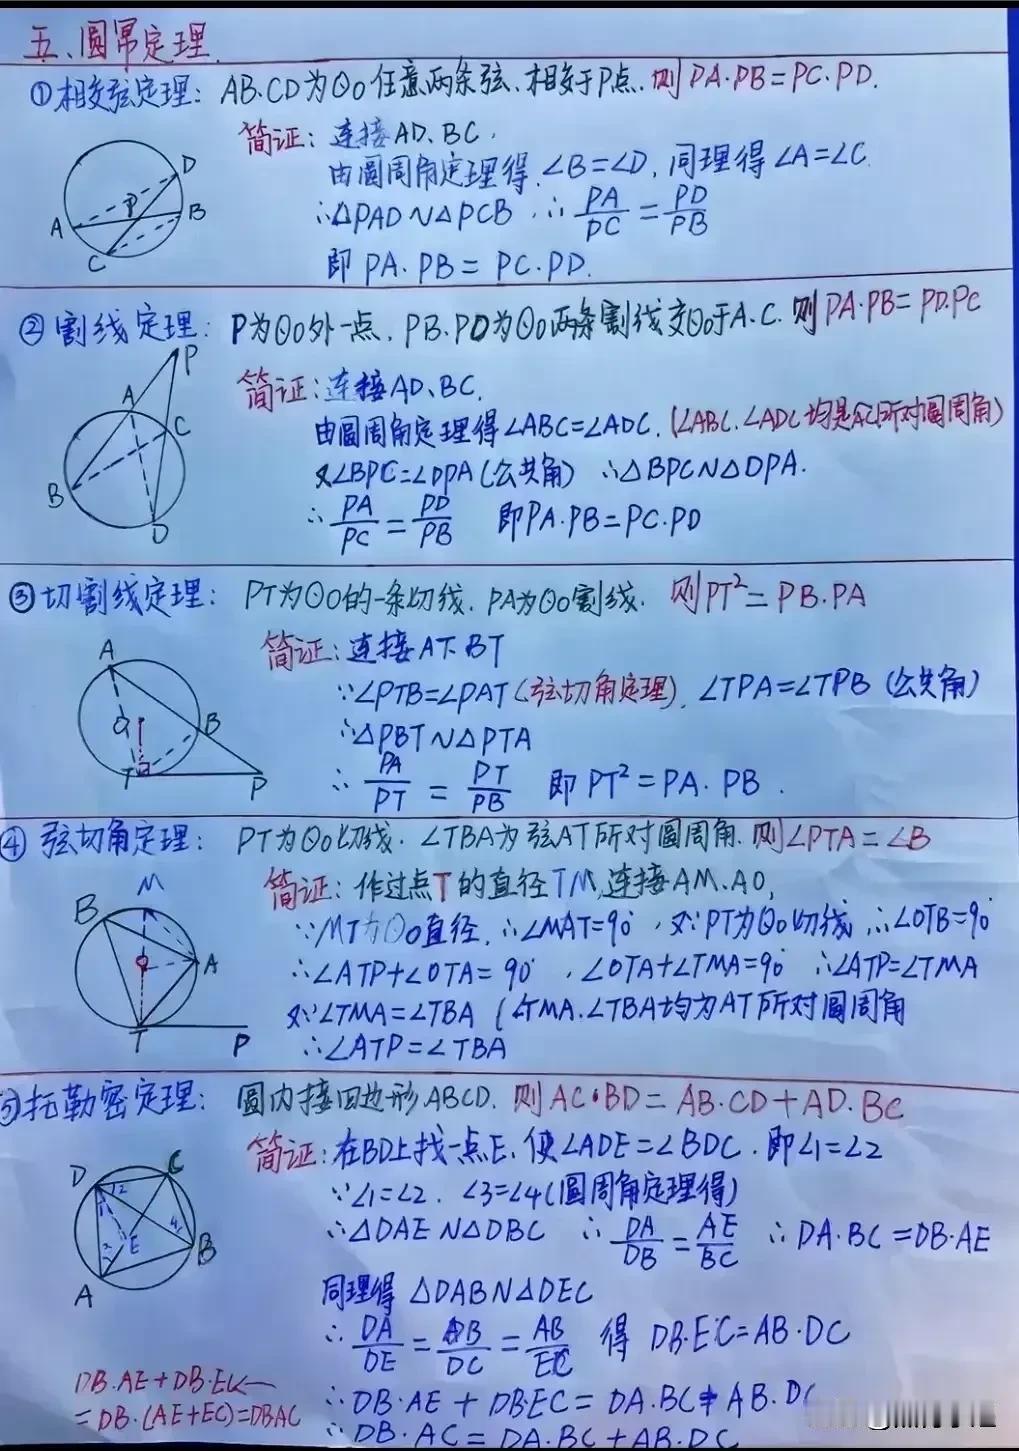 五、圆幂定理.
①相交弦定理: AB.CD为⊙O任意两条弦.相交于P点.则PA·PB=PC·PD.
简证: 连接AD、BC,
由圆周角定理得.∠B=∠D,同理得∠A=∠C.
∴△PAD∽△PCB ∴ PA/PC = PD/PB
即 PA·PB = PC·PD.
D
P
B
A
C
②割线定理: P为⊙O外一点.PB.PD为⊙O两条割线交⊙O于A.C.则PA·PB=PD.PC
简证:连接AD、BC.
由圆周角定理得∠ABC=∠ADC.(∠ABC.∠ADC均是AC所对圆周角)
又∠BPC=∠DPA(公共角) ∴△BPC∽△DPA.
∴ PA/PC = PD/PB 即PA·PB=PC·PD
P
A
C
B
D
③切割线定理: PT为⊙O的一条切线.PA为⊙O割线. 则PT²=PB.PA
简证:连接AT、BT
∵∠PTB=∠PAT(弦切角定理).∠TPA=∠TPB (公共角)
∴△PBT∽△PTA
∴ PA/PT = PT/PB 即 PT²=PA·PB .
A
B
T
P
④弦切角定理: PT为⊙O切线.∠TBA为弦AT所对圆周角.则∠PTA=∠B
简证: 作过点T的直径TM,连接AM.AO,
∵MT为⊙O直径.∴∠MAT=90°,又∵PT为⊙O切线,∴∠OTB=90°
∴∠ATP+∠OTA=90° ,∠OTA+∠TMA=90° ∴∠ATP=∠TMA
又∵∠TMA=∠TBA (∠TMA.∠TBA均为AT所对圆周角
∴∠ATP=∠TBA
M
B
A
T
P
⑤托勒密定理: 圆内接四边形ABCD. 则AC·BD=AB.CD+AD.BC
简证:在BD上找一点E.使∠ADE=∠BDC.即∠1=∠2
∵∠1=∠2.∠3=∠4(圆周角定理得)
∴△DAE∽△DBC ∴ DA/DB = AE/BC ∴DA.BC=DB·AE
同理得 △DAB∽△DEC
∴ DA/DE = DB/DC = AB/EC 得 DB·EC=AB·DC
∴DB·AE + DB·EC = DA.BC+AB.DC
∴DB·AC = DA.BC+AB.DC
D
C
1
2
3
4
E
B
A
DB·AE+DB·EC
=DB·(AE+EC)=DBAC